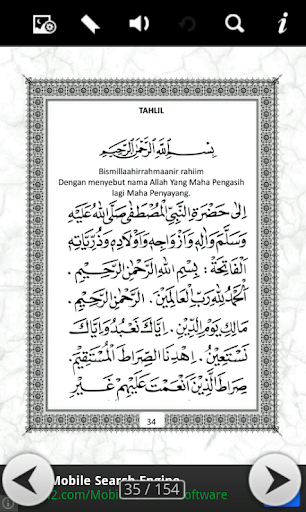 TAHLIL
بِسْمِ اللَّهِ الرَّحْمَنِ الرَّحِيمِ
Bismillaahirrahmaanir rahiim
Dengan menyebut nama Allah Yang Maha Pengasih
lagi Maha Penyayang.
اِلَى حَضْرَةِ النَّبِيِّ الْمُصْطَفَى صَلَّى اللهُ عَلَيْهِ
وَسَلَّمَ وَاٰلِهِ وَاَزْوَاجِهِ وَاَوْلَادِهِ وَذُرِّيَّاتِهِ
الْفَاتِحَةُ : بِسْمِ اللهِ الرَّحْمٰنِ الرَّحِيْمِ .
اَلْحَمْدُ لِلّٰهِ رَبِّ الْعَالَمِيْنَ . اَلرَّحْمٰنِ الرَّحِيْمِ .
مَالِكِ يَوْمِ الدِّيْنِ . اِيَّاكَ نَعْبُدُ وَاِيَّاكَ
نَسْتَعِيْنُ . اِهْدِنَا الصِّرَاطَ الْمُسْتَقِيْمَ .
صِرَاطَ الَّذِيْنَ اَنْعَمْتَ عَلَيْهِمْ غَيْرِ
34
Mobile Search Engine
35 / 154